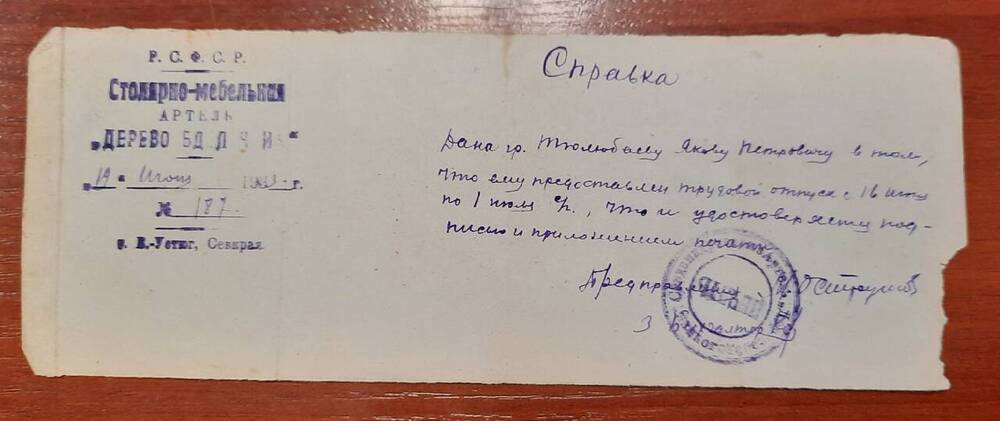 Р. С. Ф. С. Р.
Столярно-мебельная
АРТЕЛЬ
„ДЕРЕВО БД Л Ч И“
„19“ Июня 193 г.
№ 187
г. В.-Устюг, Севкрая
Справка
Дана гр. Тюлюбаеву Якову Петровичу в том,
что ему предоставлен трудовой отпуск с 16 июня
по 1 июля с/г., что и удостоверяет под-
писью и приложением печати
Предправления